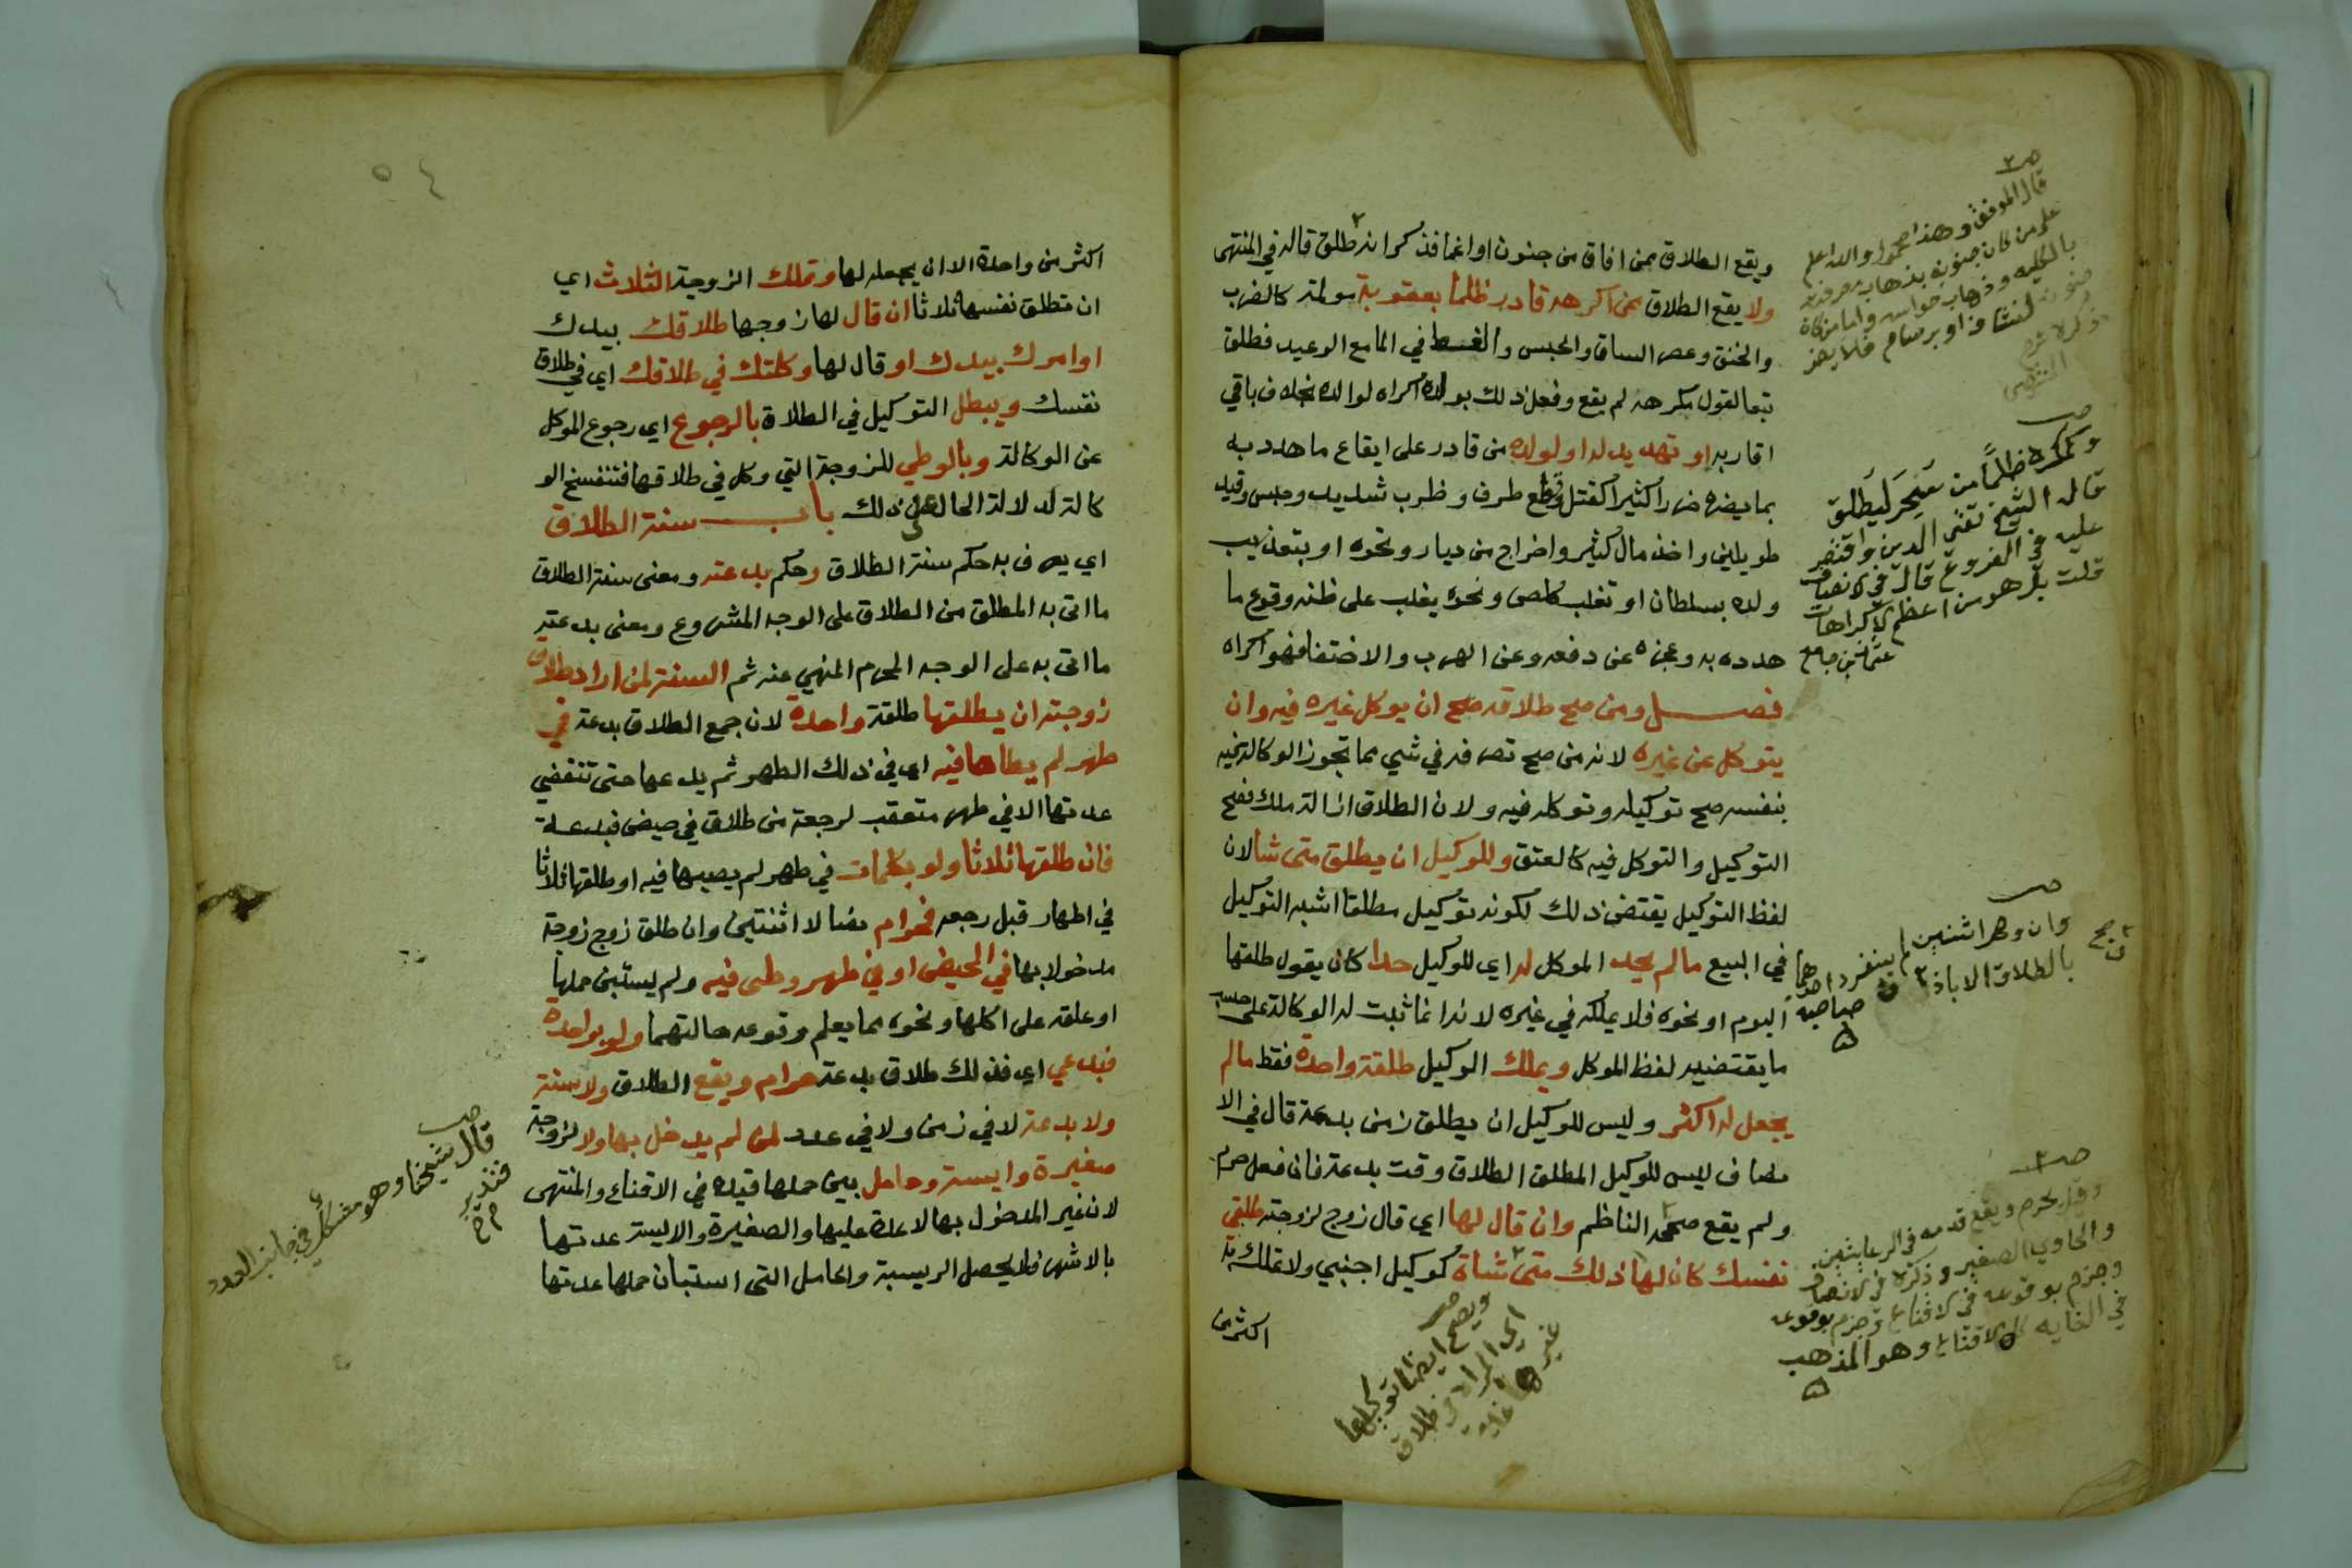 ويقع الطلاق ممن افاق من جنون او اغما فذكر انه طلق قاله في المنتهى
ولا يقع الطلاق ممن اكرهه قادر ظلما بعقوبة مولمة كالضرب
والخنق وعصر الساق والحبس والغط في الما مع الوعيد فطلق
تبعا لقول مكرهه لم يقع وفعل ذلك بولده اكراه لوالده بخلاف باقي
اقاربه او تهديد له او لولده من قادر على ايقاع ما هدد به
بما يضره ضررا كثيرا كقتل وقطع طرف وضرب شديد وحبس وقيد
طويلين واخذ مال كثير واخراج من ديار ونحوه او بتعذيب
ولده بسلطان او تغلب كلص ونحوه يغلب على ظنه وقوع ما
هدده به وعجزه عن دفعه وعن الهرب والاختفا فهو اكراه
فصل ومن صح طلاقه صح ان يوكل غيره فيه وان
يتوكل عن غيره لانه من صح تصرفه في شي مما تجوز الوكالة فيه
بنفسه صح توكيله وتوكله فيه ولان الطلاق ازالة ملك فصح
التوكيل والتوكل فيه كالعتق وللوكيل ان يطلق متى شا لان
لفظ التوكيل يقتضي ذلك لكونه توكيل مطلقا اشبه التوكيل
في البيع ما لم يحد الموكل له اي للوكيل حدا كان يقول طلقها
اليوم او نحوه فلا يملكه في غيره لانه انما ثبت له الوكالة على حسب
ما يقتضيه لفظ الموكل ويملك الوكيل طلقة واحدة فقط ما لم
يجعل له اكثر وليس للوكيل ان يطلق زمن بدعة قال في الا
نصاف ليس للوكيل المطلق الطلاق وقت بدعة فان فعل حرم
ولم يقع صححه الناظم وان قال لها اي قال زوج لزوجته طلقي
نفسك كان لها ذلك متى شاة كوكيل اجنبي ولا تملك به
اكثر من
قال الموفق وهذا والله اعلم
على من كان جنونه بذهاب معرفته
بالكليه وذهاب حواسه واما من كان
لنشاف او برسام فلا يقع
ذكره في شرح
المنتهى
وكمكره ظلما من سحر ليطلق
قاله الشيخ تقي الدين واقتصر
عليه في الفروع قال في الانصاف
قلت بل هو من اعظم الاكراهات
عثمان بن جامع
وان وكل اثنين لم ينفرد احدهما
بالطلاق الا باذن صاحبه
صح
وقيل يحرم ويقع قدمه في الرعايتين
والحاوي الصغير وذكره في الانصاف
وجزم بوقوعه في الاقناع وجزم بوقوعه
في الغايه كالاقناع وهو المذهب
ويصح ايضا توكيلها
اي المراة في طلاق
غيرها غايه
٥٤
اكثر من واحدة الا ان يجعله لها وتملك الزوجة الثلاث اي
ان تطلق نفسها ثلاثا ان قال لها زوجها طلاقك بيدك
او امرك بيدك او قال لها وكلتك في طلاقك اي في طلاق
نفسك ويبطل التوكيل في الطلاق بالرجوع اي رجوع الموكل
عن الوكالة وبالوطي للزوجة التي وكل في طلاقها فتنفسخ الو
كالة لدلالة الحال على ذلك باب سنة الطلاق
اي يعرف به حكم سنة الطلاق وحكم بدعته ومعنى سنة الطلاق
ما اتى به المطلق من الطلاق على الوجه المشروع ومعنى بدعته
ما اتى به على الوجه المحرم المنهي عنه ثم السنة لمن اراد طلاق
زوجته ان يطلقها طلقة واحدة لان جمع الطلاق بدعة في
طهر لم يطاها فيه اي في ذلك الطهر ثم يدعها حتى تنقضي
عدتها الا في طهر متعقب لرجعة من طلاق في حيض فبدعة
فان طلقها ثلاثا ولو بكلمات في طهر لم يصبها فيه او طلقها ثلاثا
في اطهار قبل رجعه فحرام نصا لا اثنتين وان طلق زوج زوجة
مدخولا بها في الحيض او في طهر وطى فيه ولم يستبن حملها
او علقه على اكلها ونحوه مما يعلم وقوعه حالتهما ولو بواحدة
فبدعي اي فذلك طلاق بدعة حرام ويقع الطلاق ولا سنة
ولا بدعة لا في زمن ولا في عدد لمن لم يدخل بها ولا لزوجة
صغيرة وايسة وحامل بين حملها قيده في الاقناع والمنتهى
لان غير المدخول بها لا عدة عليها والصغيرة والايسة عدتها
بالاشهر فلا يحصل الريبة والحامل التي استبان حملها عدتها
قال شيخنا وهو مشكل في جانب العدد